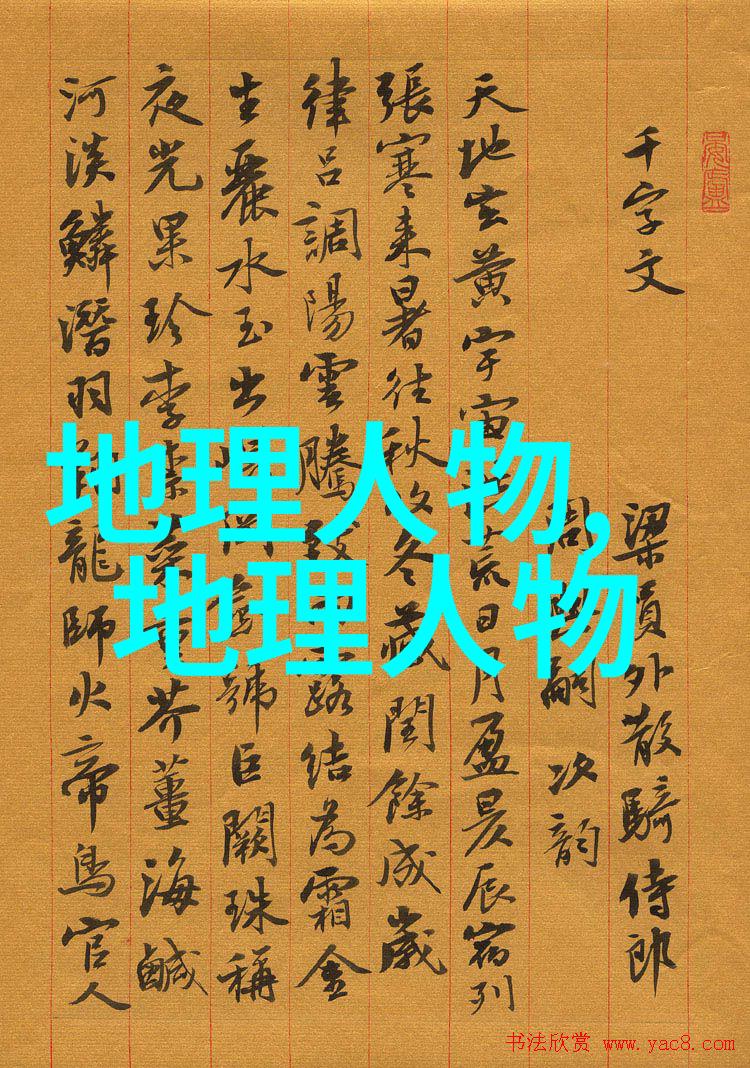 千字文
梁員外散騎侍郎
周興嗣 次韵
天地玄黄宇宙洪荒日月盈昃辰宿列
張寒来暑往秋收冬藏閏餘成歲
律吕調陽雲騰致雨露結為霜金
生麗水玉出崐岡劍號巨闕珠稱
夜光果珍李柰菜重芥薑海鹹
河淡鱗潛羽翔龍師火帝鳥官人
地理人物,
地理人物
书法欣赏 www.yac8.com